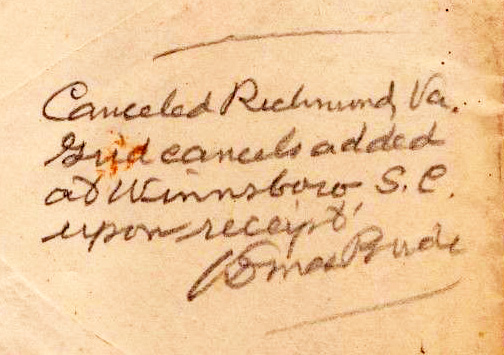 Canceled Richmond, Va.
Grid cancels added
at Winnsboro, S.C.
upon receipt,